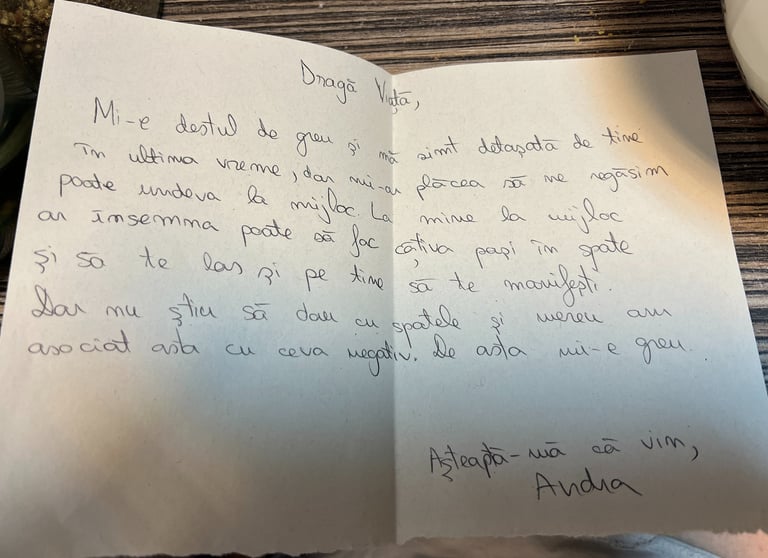 Dragă Viață,
Mi-e destul de greu și mă simt detașată de tine
în ultima vreme, dar mi-ar plăcea să ne regăsim
poate undeva la mijloc. La mine la mijloc
ar însemna poate să fac câțiva pași în spate
și să te las și pe tine să te manifești.
Dar nu știu să dau cu spatele și mereu am
asociat asta cu ceva negativ. De asta mi-e greu.
Așteaptă-mă că vin,
Andra